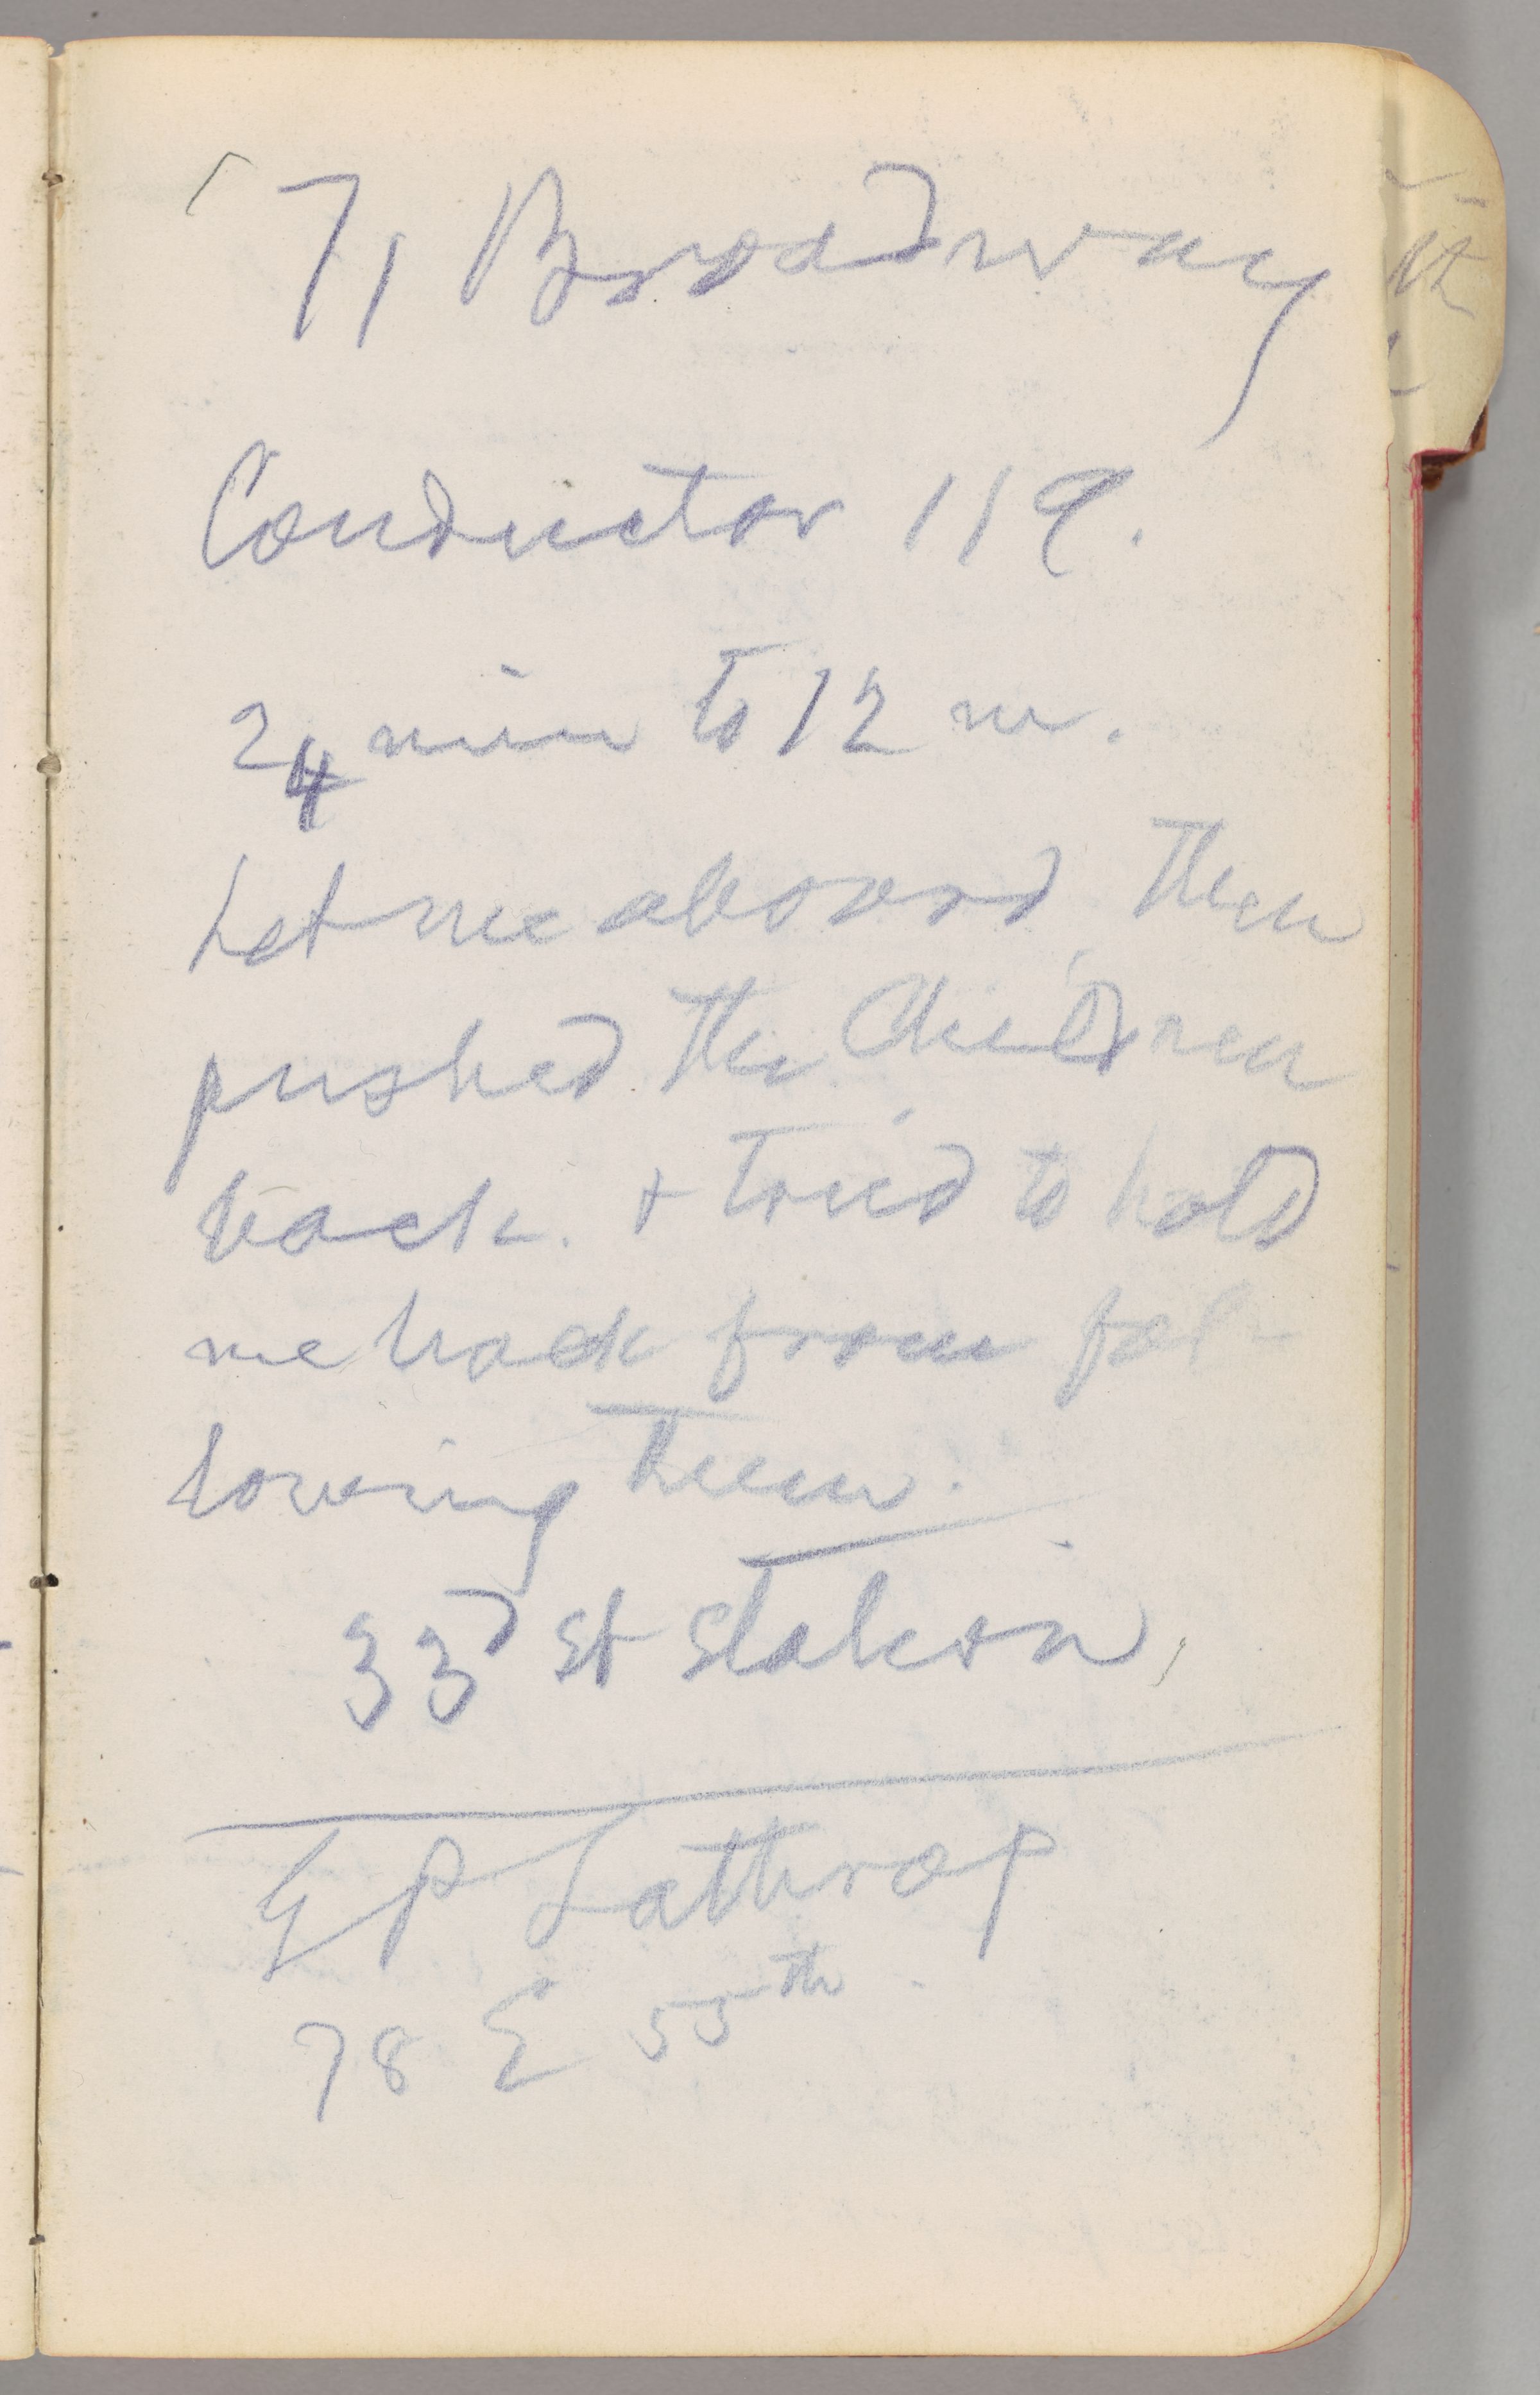 71 Broadway
Conductor 119.
24 min to 12 m.
Let me aboard, then
pushed the children
back. + tried to hold
me back from fol-
lowing them.
33d St Station,
G P Lathrop
78 E 55th